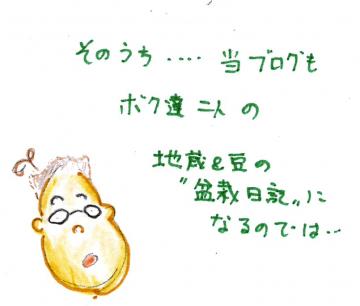 そのうち‥‥当ブログも
ボク達二人の
地蔵&豆の
〝盆栽日記〟に
なるのでは…